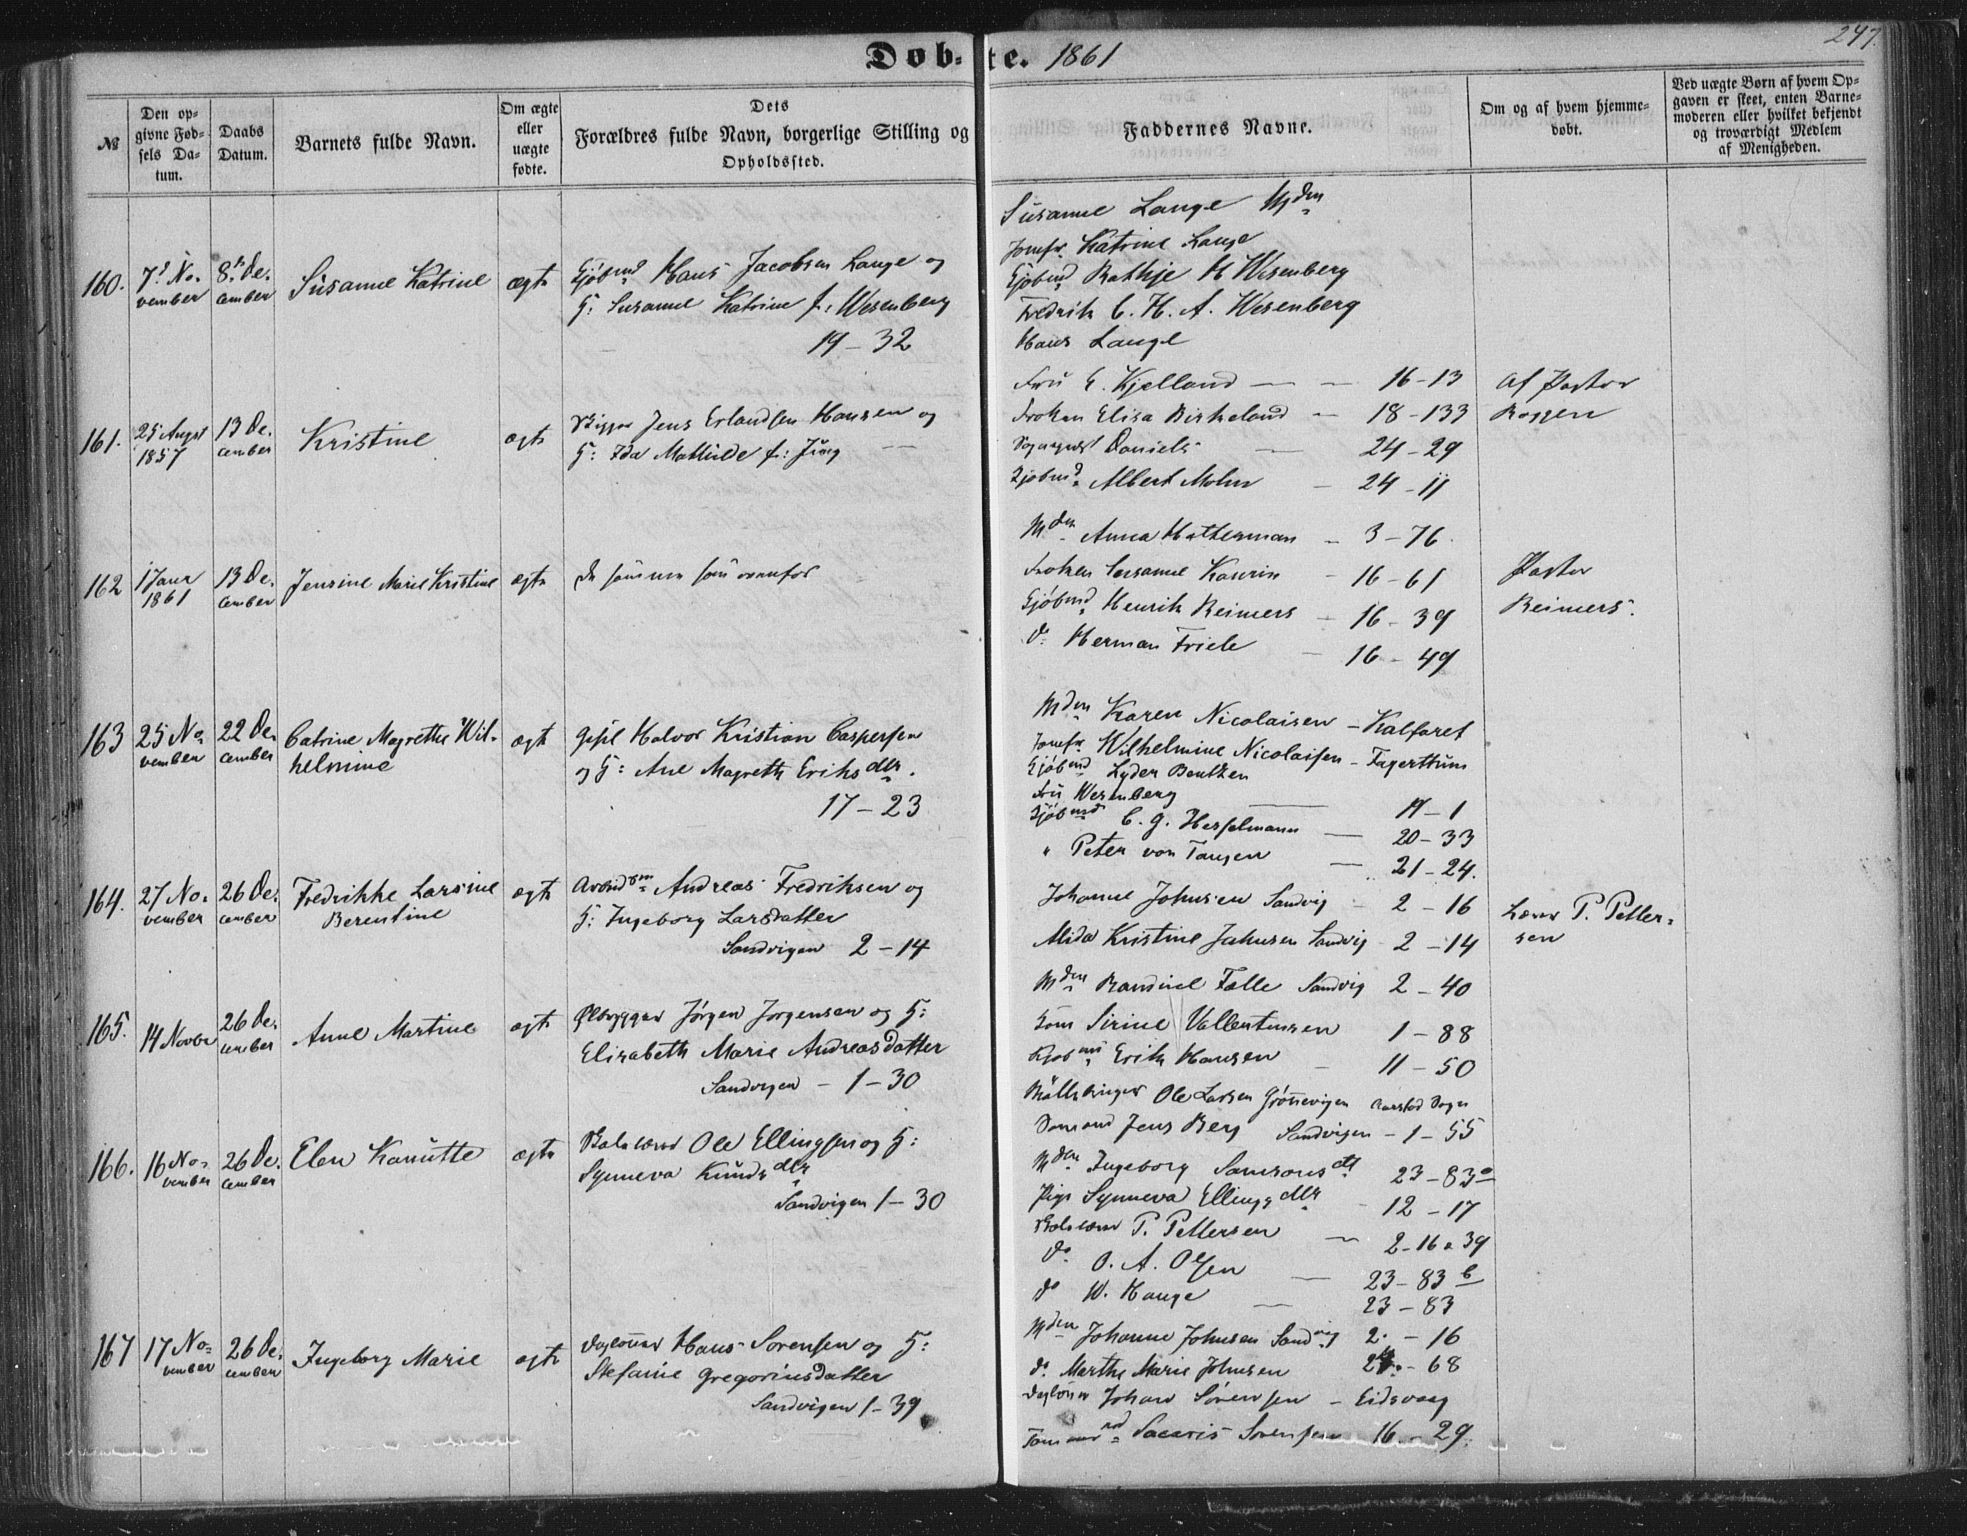 247.
Døbte. 1861
№
Den opgivne Fødsels Datum.
Daabs Datum.
Barnets fulde Navn.
Om ægte eller uægte fødte.
Dets Forældres fulde Navn, borgerlige Stilling og Opholdssted.
Faddernes Navne.
Om og af hvem hjemmedøbt.
Ved uægte Børn af hvem Opgaven er skeet, enten Barnemoderen eller hvilket bekjendt og troværdigt Medlem af Menigheden.
160.
7d No-
vember
8de De-
cember
Susanne Katrine
ægte
Kjøbmd Hans Jacobsen Lange og
H: Susanne Katrine f: Wesenberg
19 - 32
Susanne Lange Mden
Jomfr Katrine Lange
Kjøbmd Rathje H Wesenberg
Fredrik C. H. A. Wesenberg
Hans Lange
161.
25 Augst
1857
13 De-
cember
Kristine
ægte
Skipper Jens Erlandsen Hansen og
H: Ida Mathilde f: Jung
Fru E. Kjelland — 16-13
Frøken Elisa Birkeland — 18-133
Daniels — 24-29
Kjøbmd Albert Mohn — 24-11
Af Pastor
Roggen
162
1 Janr
1861
13 De-
cember
Jensine Marie Kristine
ægte
De samme som ovenfor
Mden Anna Hatterman — 3-76
Frøken Susanne Konrin — 16-61
Kjøbmd Henrik Reimers — 16-39
do Herman Friele — 16-49
Pastor
Reimers.
163
25 No-
vember
22 De-
cember
Catrine Magrethe Wil-
helmine
ægte
Gesel Halvor Kristian Caspersen
og H: Ane Magreth Eriksdtr.
17 - 23
Mden Karen Nicolaisen — Kalfaret
Jomfr Wilhelmine Nicolaisen — Fagerttun
Kjøbmd Lyder Bentzen
Fru Wesenberg — 19-1
Kjøbmd C. G. Hesselmann — 20-33
" Peter von Tangen — 21-24.
164.
27 No-
vember
26 De-
cember
Fredrikke Larsine
Berentine
ægte
Andreas Fredriksen og
H: Ingeborg Larsdatter
Sandvigen 2-14
Johanne Johnsen Sandvig — 2-16
Alida Kristine Johnsen Sandvig 2-14
Mden Randine Falle Sandvig 2-40
Lærer P. Petter-
sen
165.
14 Novbr
26 De-
cember
Anne Martine
ægte
Ølbrygger Jørgen Jørgensen og H:
Elisabeth Marie Andreasdatter
Sandvigen - 1-30
Jom Sirine Vallentinsen 1-88
Kjøbmd Erik Hansen — 11-50
Ole Larsen Grønevigen Aarstad Sogn
Sømand Jens Berg Sandvigen - 1-55
166.
16 No-
vember
26 De-
cember
Elen Kanutte
ægte
Skolelærer Ole Ellingsen og H:
Synneva Knudsdtr
Sandvigen 1-30
Mden Ingeborg Samsonsdtr 23-83a
Pige Synneva Ellingsdtr 12-17
Skolelærer P. Pettersen — 2-16 a 39
do O. A. Olsen — 23-83 b
do W. Hauge — 23-83
167
17 No-
vember
26 De-
cember
Ingeborg Marie
ægte
Dagløner Hans Sørensen og H:
Stefanie Gregoriusdatter
Sandvigen 1-39
Mden Johanne Johnsen Sandvig 2-16
do Marthe Marie Johnsen 24-68
Dagløner Johan Sørensen - Eidsvaag
Sacaris Sørensen 16-29.